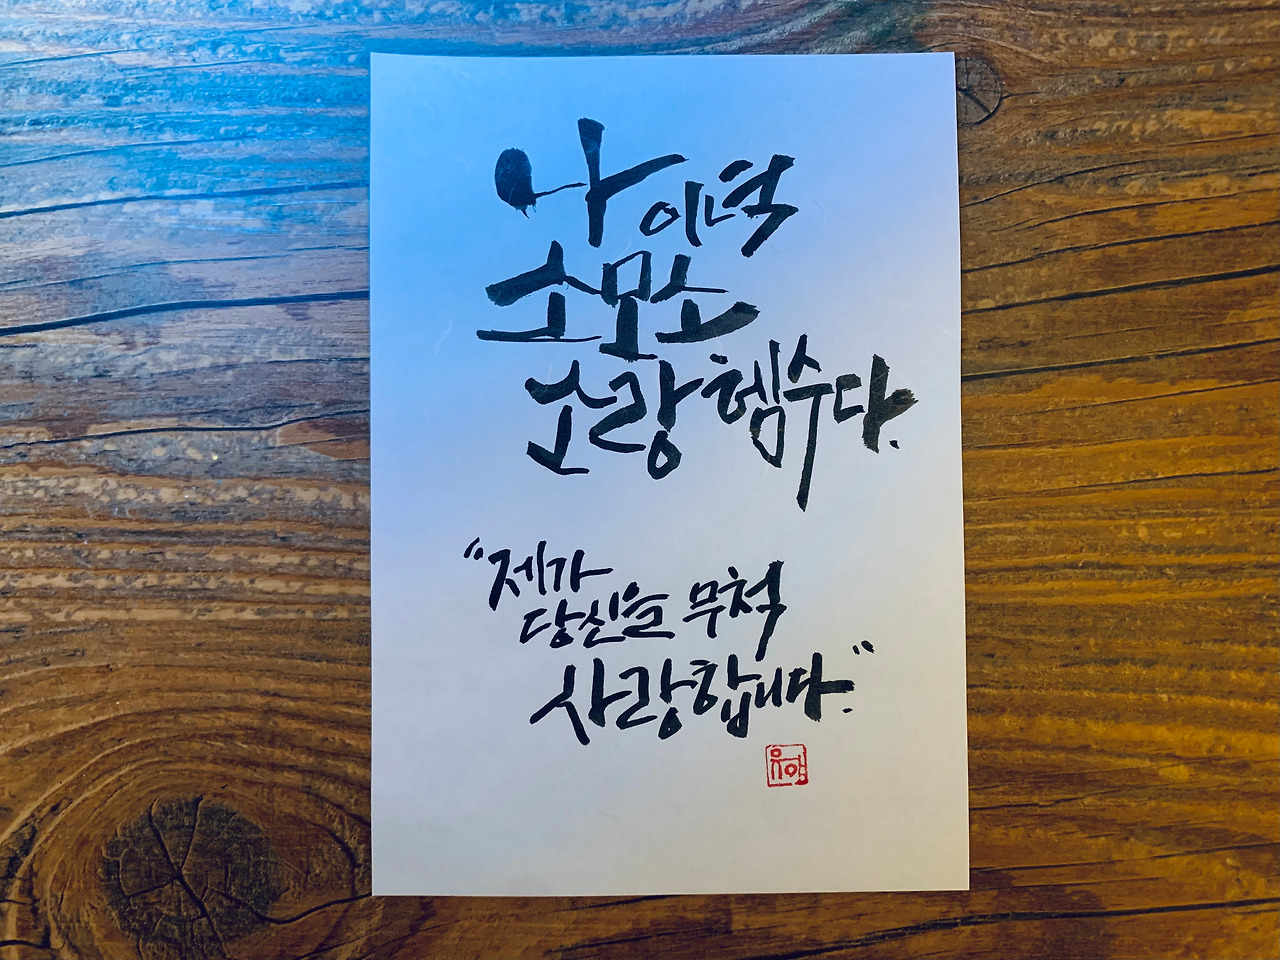 나 이녁
소모소
소랑헴수다.
"제가
당신을 무척
사랑합니다."